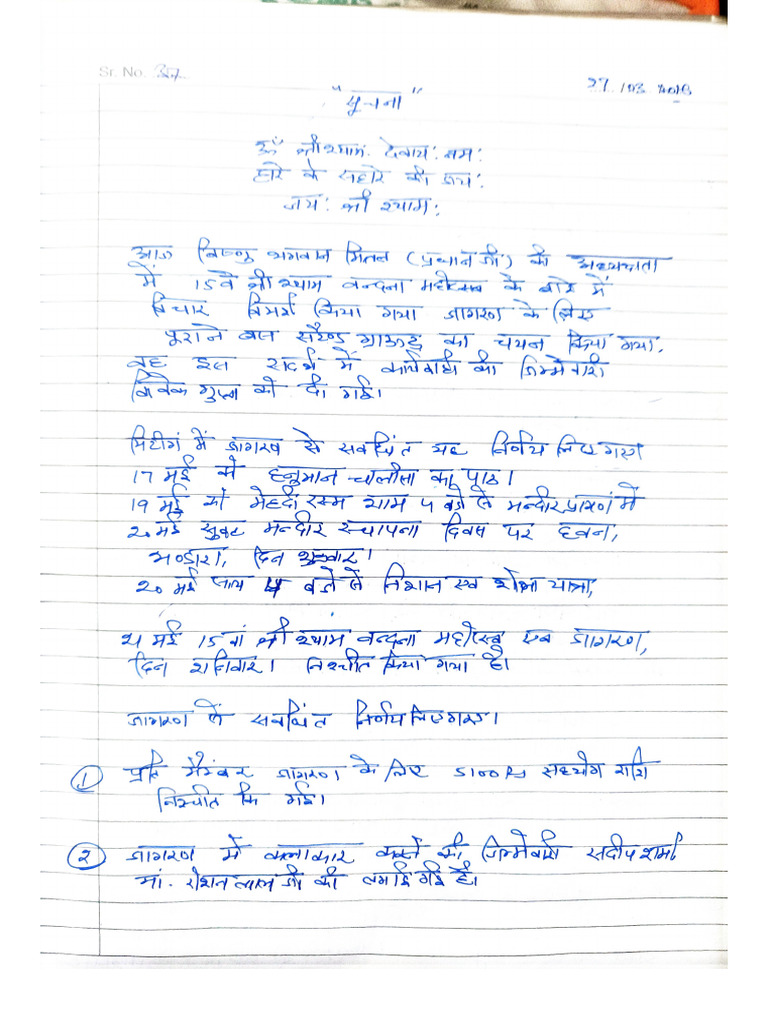 Sr. No.
27/03
"सूचना"
ॐ श्री श्याम: देवाय: नम:
हारे के सहारे की जय:
जय: श्री श्याम:
आज विष्णु भगवान मितल (प्रधान जी) की अध्यक्षता
में 15वे श्री श्याम वन्दना महोत्सव के बारे में
विचार विमर्श किया गया जागरण के लिए
पुराने बस सटैण्ड ग्राऊण्ड का चयन किया गया,
वह इस संदर्भ में कार्यवाही की जिम्मेवारी
विवेक गुप्ता को दी गई।
मिटींग में जागरण से सबंधित यह निर्णय लिए गए
17 मई को हनुमान चालीसा का पाठ।
19 मई को मेंहदी रस्म शाम 4 बजे से मन्दीर प्रागंण में
20 मई सुबह मन्दीर स्थापना दिवस पर हवन,
भण्डारा, दिन शुक्रवार।
20 मई शाम 4 बजे से निशान एवं शोभा यात्रा,
21 मई 15वां श्री श्याम वन्दना महोत्सव एंव जागरण,
दिन शनिवार। निश्चीत किया गया है।
जागरण से सबंधित निर्णय लिए गए।
① प्रति मैम्बर जागरण के लिए 5100 Rs सहयोग राशि
निश्चीत कि गई।
② जागरण में कलाकार करने की जिम्मेवारी संदीप शर्मा,
मा. रोशन लाल जी की लगाई गई है।